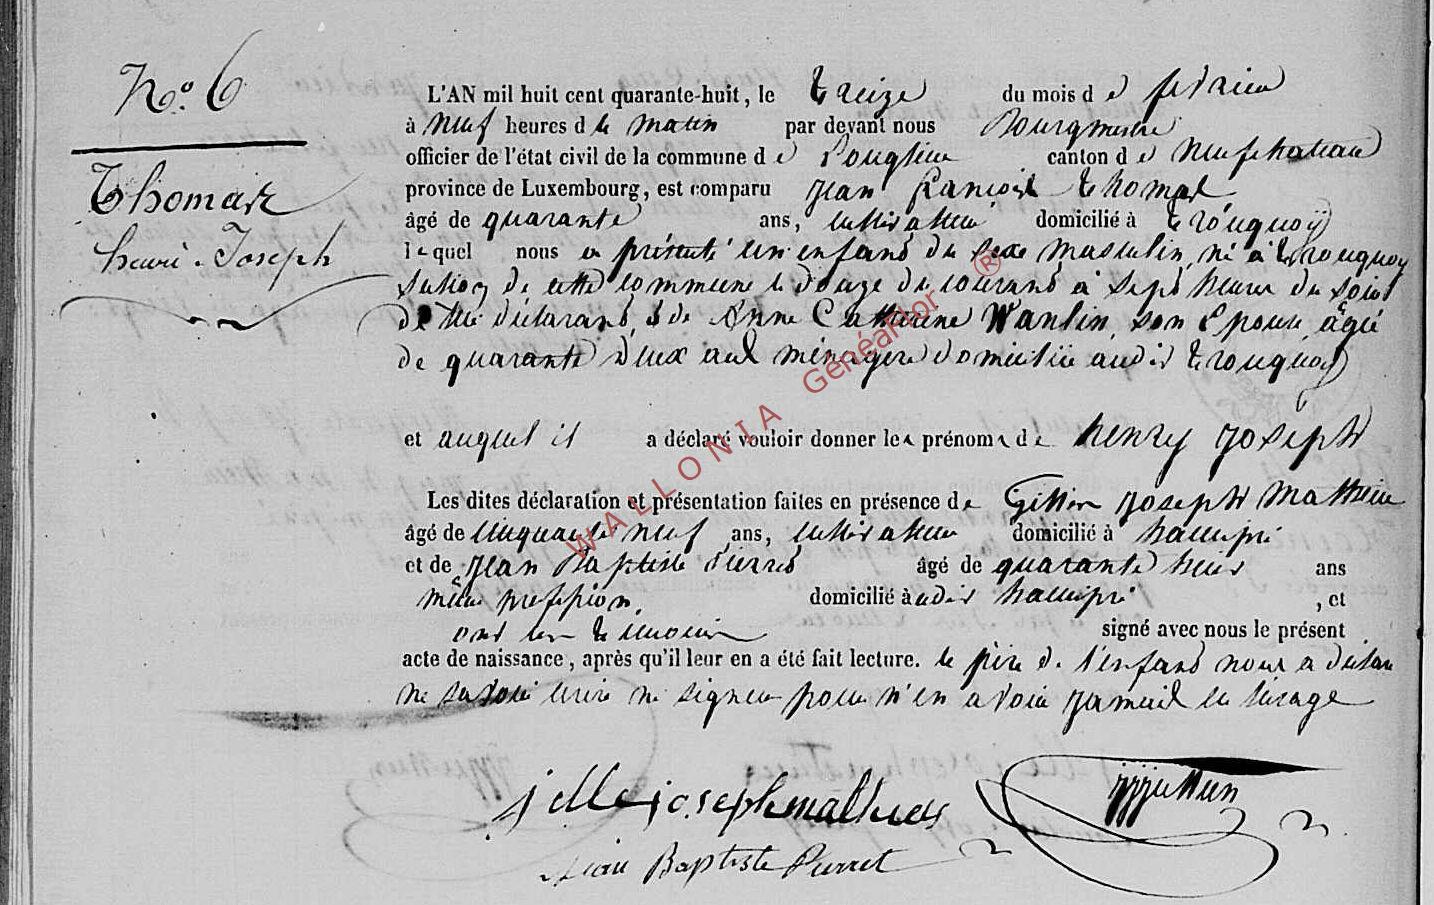 N.º 6
Thomas
henri Joseph
L'AN mil huit cent quarante-huit, le treize du mois de février
à neuf heures du matin par devant nous Bourgmestre
officier de l'état civil de la commune de Longlier canton de Neufchateau
province de Luxembourg, est comparu Jean François Thomas
âgé de quarante ans, cultivateur domicilié à tronquoÿ
lequel nous a présenté un enfant du sexe masculin, né à tronquoy
section de cette commune le douze du courant à sept heures du soir
de lui déclarant, & de Anne Catherine Wanlin son Epouse âgée
de quarante deux ans ménagère domiciliée audit tronquoy
et auquel il a déclaré vouloir donner les prénoms de henry Joseph
Les dites déclaration et présentation faites en présence de Joseph Mathieu
âgé de cinquante neuf ans, cultivateur domicilié à hamipré
et de Jean Baptiste Pierret âgé de quarante huit ans
même profession, domicilié audit hamipré, et
ont les témoins signé avec nous le présent
acte de naissance, après qu'il leur en a été fait lecture. le père de l'enfant nous a déclaré
ne savoir écrire ni signer pour n'en avoir jamais eu l'usage
joseph mathieu
Jean Baptiste Pierret
WALLONIA Généaflor ®